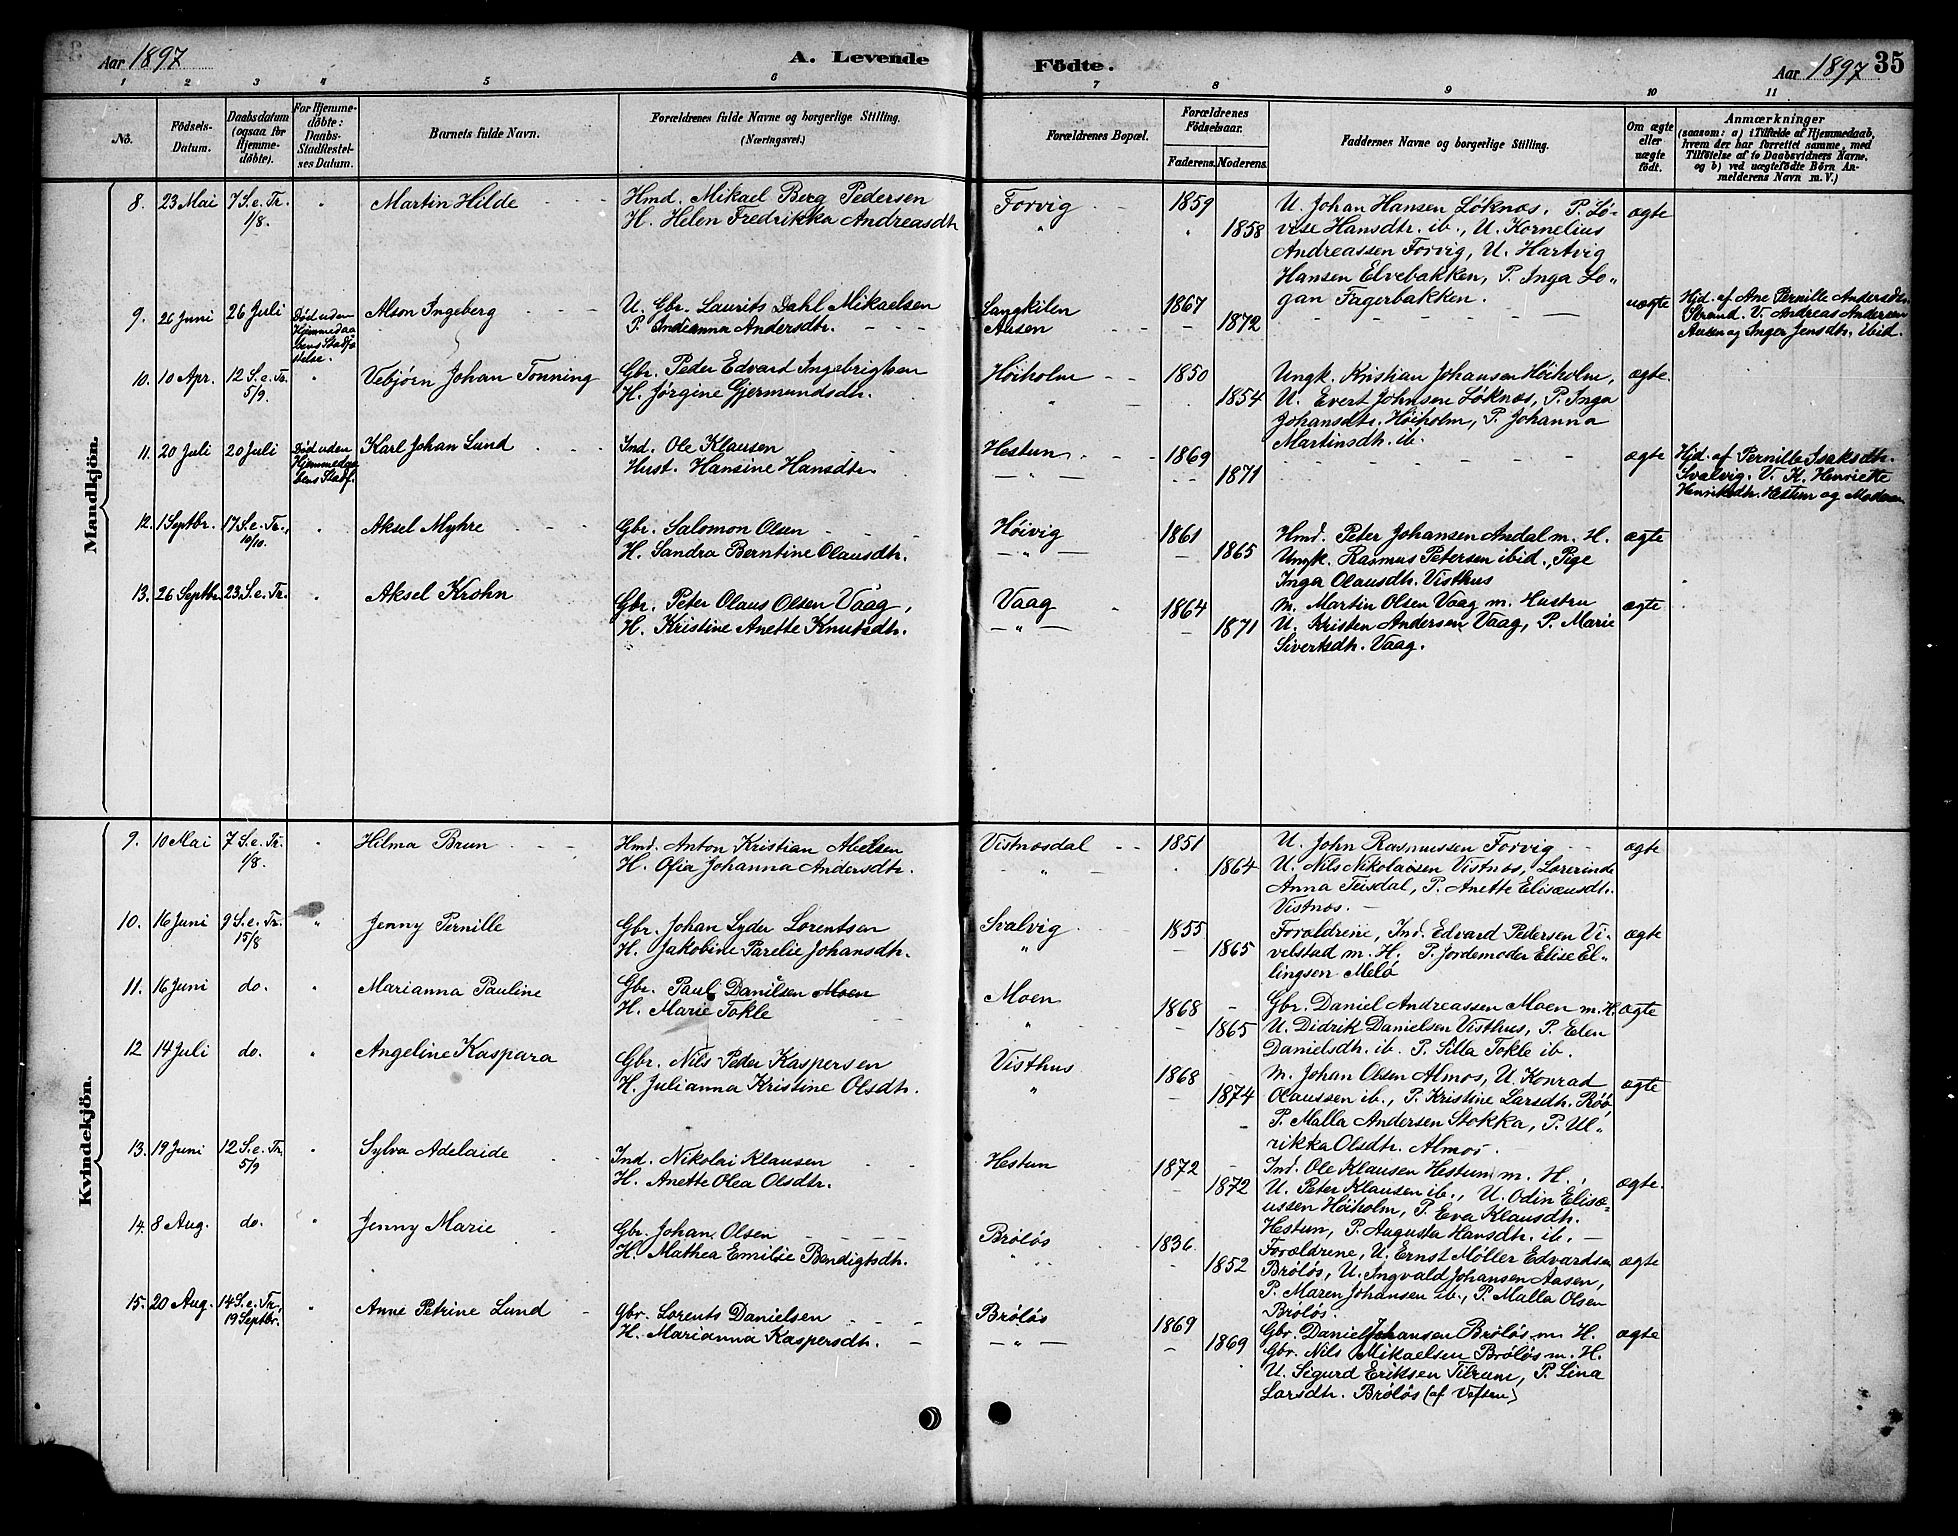 Aar 1897 A. Levende Födte. Aar 1897 35
1 2 3 4 5 6 7 8 9 10 11
No. Födsels-Datum. Daabsdatum (ogsaa for Hjemme-döbte). For Hjemme-döbte: Daabs-Stadfæstel-ses Datum. Barnets fulde Navn. Forældrenes fulde Navne og borgerlige Stilling. (Næringsvei.) Forældrenes Bopæl. Forældrenes Födselsaar. Faderens. Moderens. Faddernes Navne og borgerlige Stilling. Om ægte eller uægte födt. Anmærkninger (saasom: a) i Tilfælde af Hjemmedaab, hvem der har forrettet samme, med Tilföielse af to Daabsvidners Navne. og b) ved uægtefödte Börn An-melderens Navn m. V.)
Mandkjön.
8. 23 Mai 7 S. e. Tr. " Martin Hilde Hmd. Mikael Berg Pedersen Forvig 1859 U. Johan Hansen Løknæs, P. Lø- ægte
1/8. H. Helen Fredrikka Andreasdtr " 1858 vise Hansdtr. ib., U. Kornelius
Andreassen Forvig, U. Hartvig
Hansen Elvebakken, P. Inga Lo-
gan Fagerbakken.
9. 26 Juni 26 Juli Død uden Alson Ingeberg U. Gbr. Laurits Dahl Mikaelsen Langkilen 1867 uægte Hjd. af Ane Pernille Andersdtr.
Hjemmedaa P. Indianna Andersdtr. Aasen 1872 Strand. V. Andreas Andersen
bens Stadfæ Aasen og Inger Jensdtr. ibid.
stelse.
10. 10 Apr. 12 S. e. Tr. " Vebjørn Johan Tonning Gbr. Peder Edvard Ingebrigtsen Høiholm 1850 Ungk. Kristian Johansen Høiholm, ægte.
5/9. H. Jørgine Gjermundsdtr. " 1854 U. Evert Johnsen Løknæs, P. Inga
Johansdtr. Høiholm, P. Johanna
Martinsdtr. ib.
11. 20 Juli 20 Juli Død uden Karl Johan Lund Ind. Ole Klausen Hestun 1869 ægte Hjd. af Pernille Isaksdtr.
Hjemmedaa Hust. Hansine Hansdtr. — " — 1871 Svalvig. V. K. Henriette
bens Stadf. Henriksdtr. Hestun og Moderen
12. 1 Septbr. 17 S. e. Tr., " Aksel Myhre Gbr. Salomon Olsen Høivig 1861 Hmd. Peter Johansen Andal m. H. ægte
10/10. H. Sandra Berntine Olausdtr. — " — 1865 Ungk. Rasmus Petersen ibid., Pige
Inga Olausdtr. Visthus
13. 26 Septbr 23 S. e. Tr. " Aksel Krohn Gbr. Peter Olaus Olsen Vaag, Vaag 1864 m. Martin Olsen Vaag m. Hustru ægte
H. Kristine Anette Knutsdtr. — " — 1871 U. Kristen Andersen Vaag, P. Marie
Sivertsdtr. Vaag.
Kvindekjön.
9. 10 Mai 7 S. e. Tr. " Hilma Brun Hmd. Anton Kristian Abelsen Vistnæsdal 1851 U. John Rasmussen Forvig ægte
1/8. H. Ofia Johanna Andersdtr. " 1864 U. Nils Nikolaisen Vistnæs, Lærerinde
Anna Teisdal, P. Anette Elisæusdtr.
Vistnæs.
10. 16 Juni 9 S. e. Tr. " Jenny Pernille Gbr. Johan Lyder Lorentsen Svalvig 1855 Forældrene, Ind. Edvard Pedersen Vi- ægte
15/8 H. Jakobine Parelie Johansdtr. " 1865 velstad m. H. P. Jordemoder Elise El-
lingsen Melø
11. 16 Juni do. " Marianna Pauline Gbr. Paul Danilsen Moen Moen 1868 Gbr. Daniel Andreassen Moen m. H. ægte
H. Marie Tokle " 1865 U. Didrik Danielsen Visthus, P. Elen
Danielsdtr. ib. P. Silla Tokle ib.
12 14 Juli do. " Angeline Kaspara Gbr. Nils Peder Kaspersen Visthus 1868 m. Johan Olsen Almøs, U. Konrad ægte
H. Julianna Kristine Olsdtr. " 1874 Olaussen ib., P. Kristine Larsdtr. Røø
P. Malla Andersen Stokka, P. Ul-
rikka Olsdtr. Almøs.
13. 19 Juni 12 S. e. Tr. " Sylva Adelaide Ind. Nikolai Klausen Hestun 1872 Ind. Ole Klausen Hestun m. H., ægte.
5/9 H. Anette Olea Olsdtr. 1872 U. Peter Klausen ib., U. Odin Elisæ-
ussen Høiholm, P. Eva Klausdtr.
Hestun, P. Augusta Hansdtr. ib.
14. 8 Aug. do. " Jenny Marie Gbr. Johan Olsen Brøløs 1836. Forældrene, U. Ernst Møller Edvardsen ægte
H. Mathea Emilie Bendigtsdtr. " 1852 Brøløs, U. Ingvald Johansen Aasen,
P. Maren Johansen ib., P. Malla Olsen
Brøløs.
15. 20 Aug. 14 S. e. Tr., " Anne Petrine Lund Gbr. Lorents Danielsen Brøløs 1869 Gbr. Daniel Johansen Brøløs m. H. ægte
19 Septbr. H. Marianna Kaspersdtr. — " — 1869 Gbr. Nils Mikaelsen Brøløs m. H.
U. Sigurd Eriksen Tilrum, P. Lina
Larsdtr. Brøløs (af Vefsen)